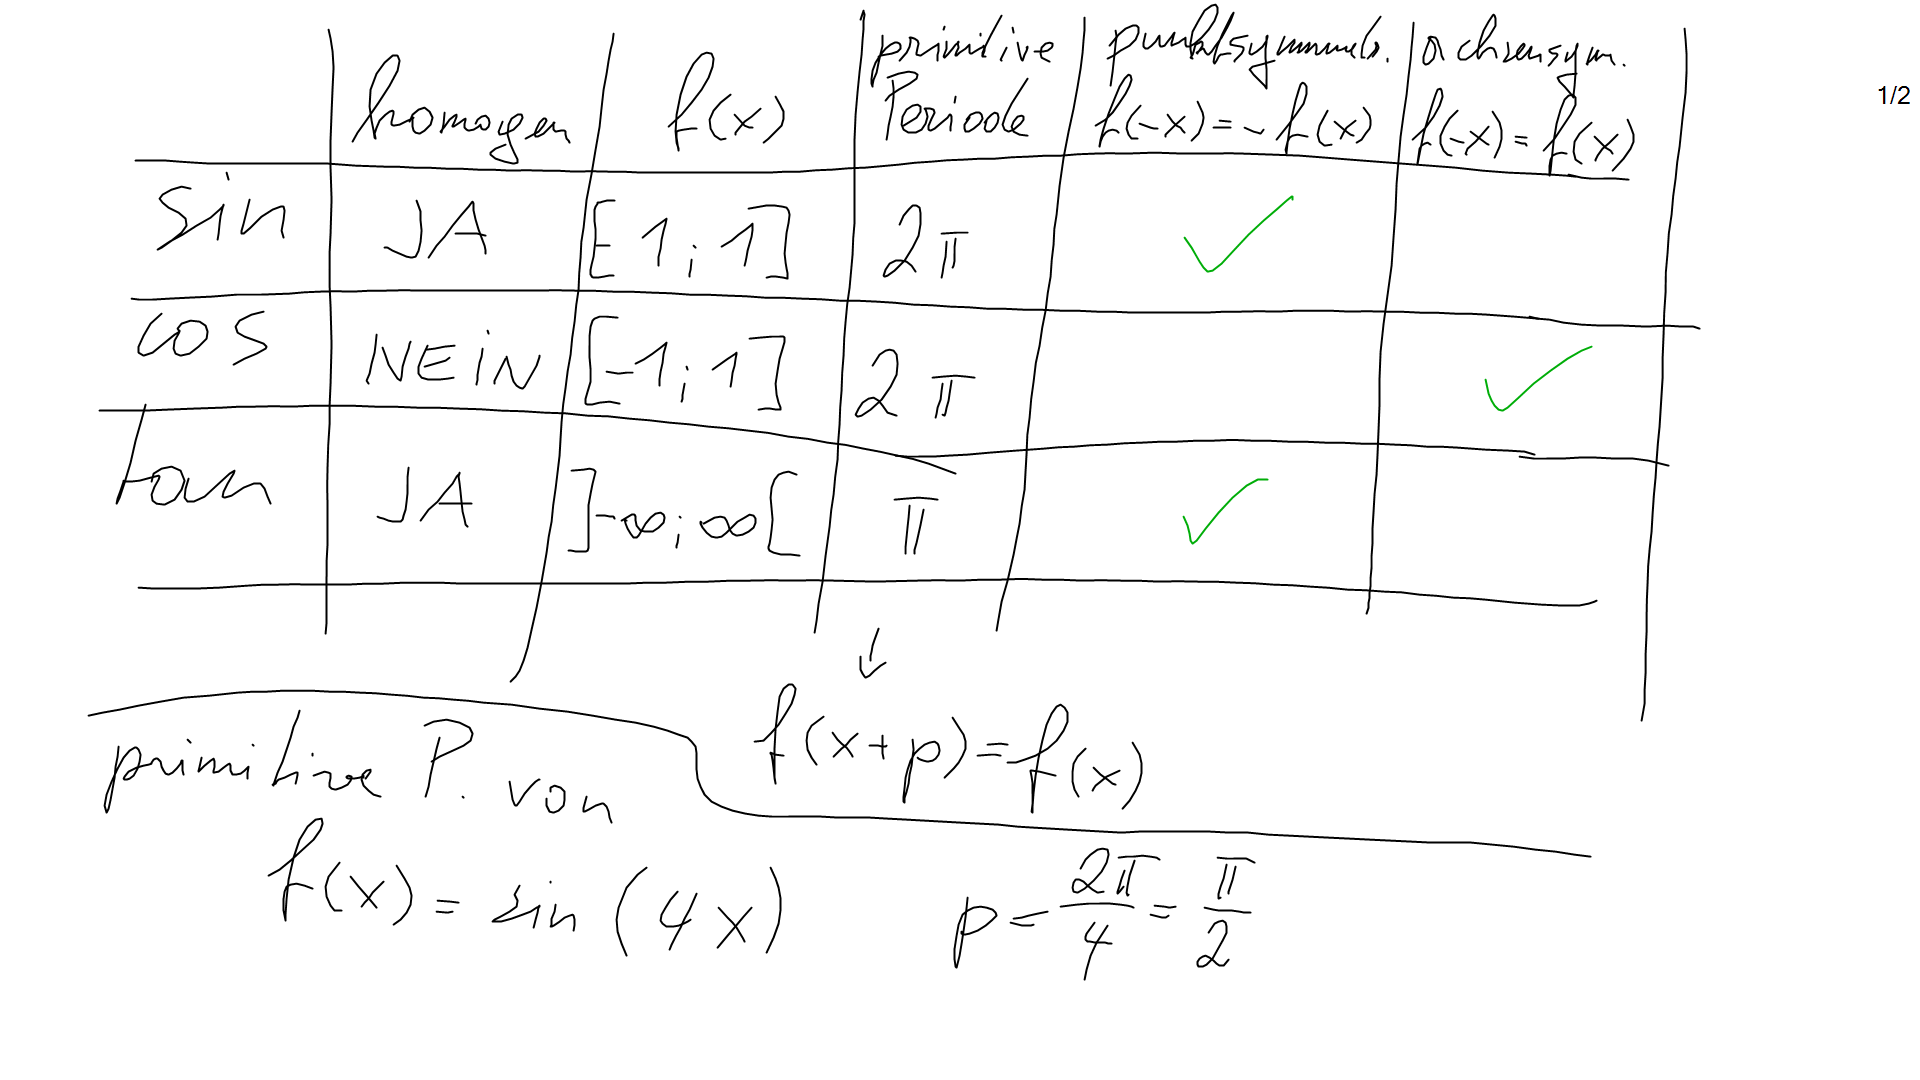 homogen f(x) primitive Periode punktsymmetr. f(-x) = - f(x) achsensym. f(-x) = f(x)
1/2
sin JA [-1;1] 2π ✓
cos NEIN [-1;1] 2π ✓
tan JA ]-∞;∞[ π ✓
↓
f(x+p) = f(x)
primitive P. von
f(x) = sin (4x) p = 2π/4 = π/2